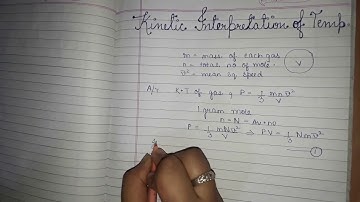 Kinetic Interpretation of Temp.
m = mass of each gas
n = total no of mole.
v² = mean sq speed
V
A/q K.T of gas, P = 1/3 mn/V v²
1 gram mole
n = N = Av. no
P = 1/3 mNv²/V ⇒ PV = 1/3 Nmv²
①